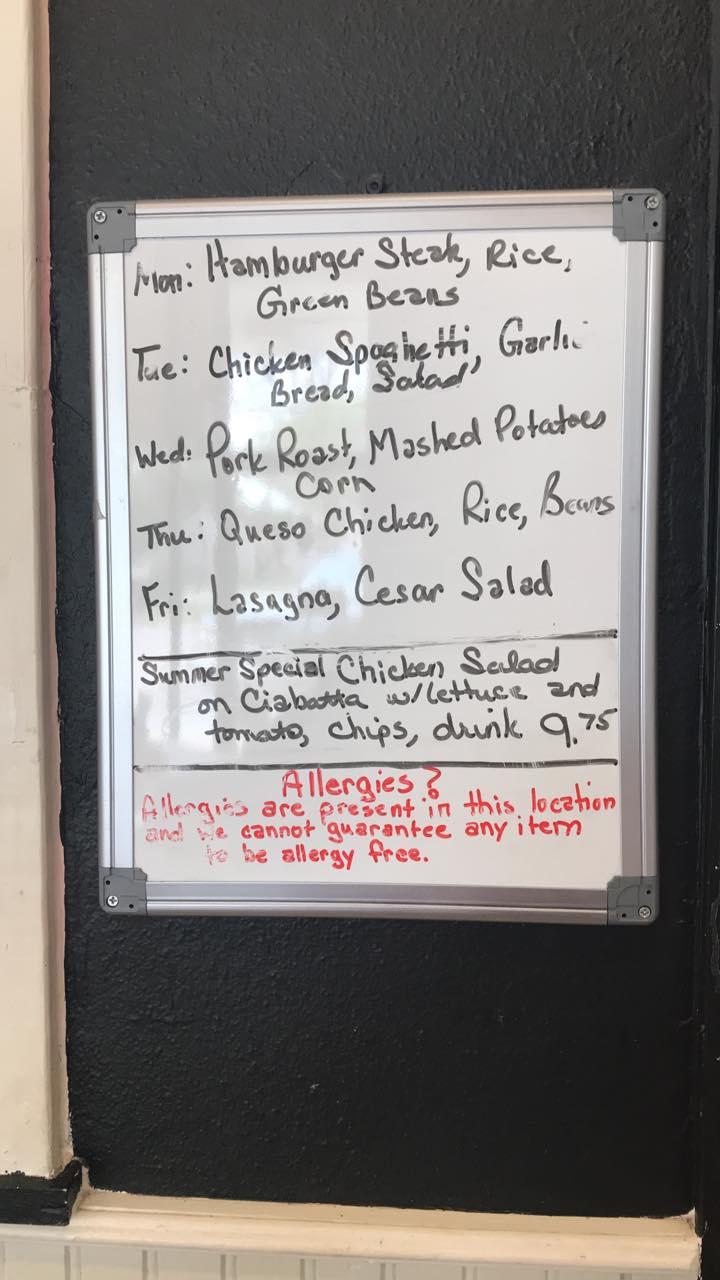 Mon: Hamburger Steak, Rice,
Green Beans
Tue: Chicken Spaghetti, Garlic
Bread, Salad
Wed: Pork Roast, Mashed Potatoes
Corn
Thu: Queso Chicken, Rice, Beans
Fri: Lasagna, Cesar Salad
Summer Special Chicken Salad
on Ciabatta w/lettuce and
tomato, chips, drink 9.75
Allergies?
Allergies are present in this location
and we cannot guarantee any item
to be allergy free.